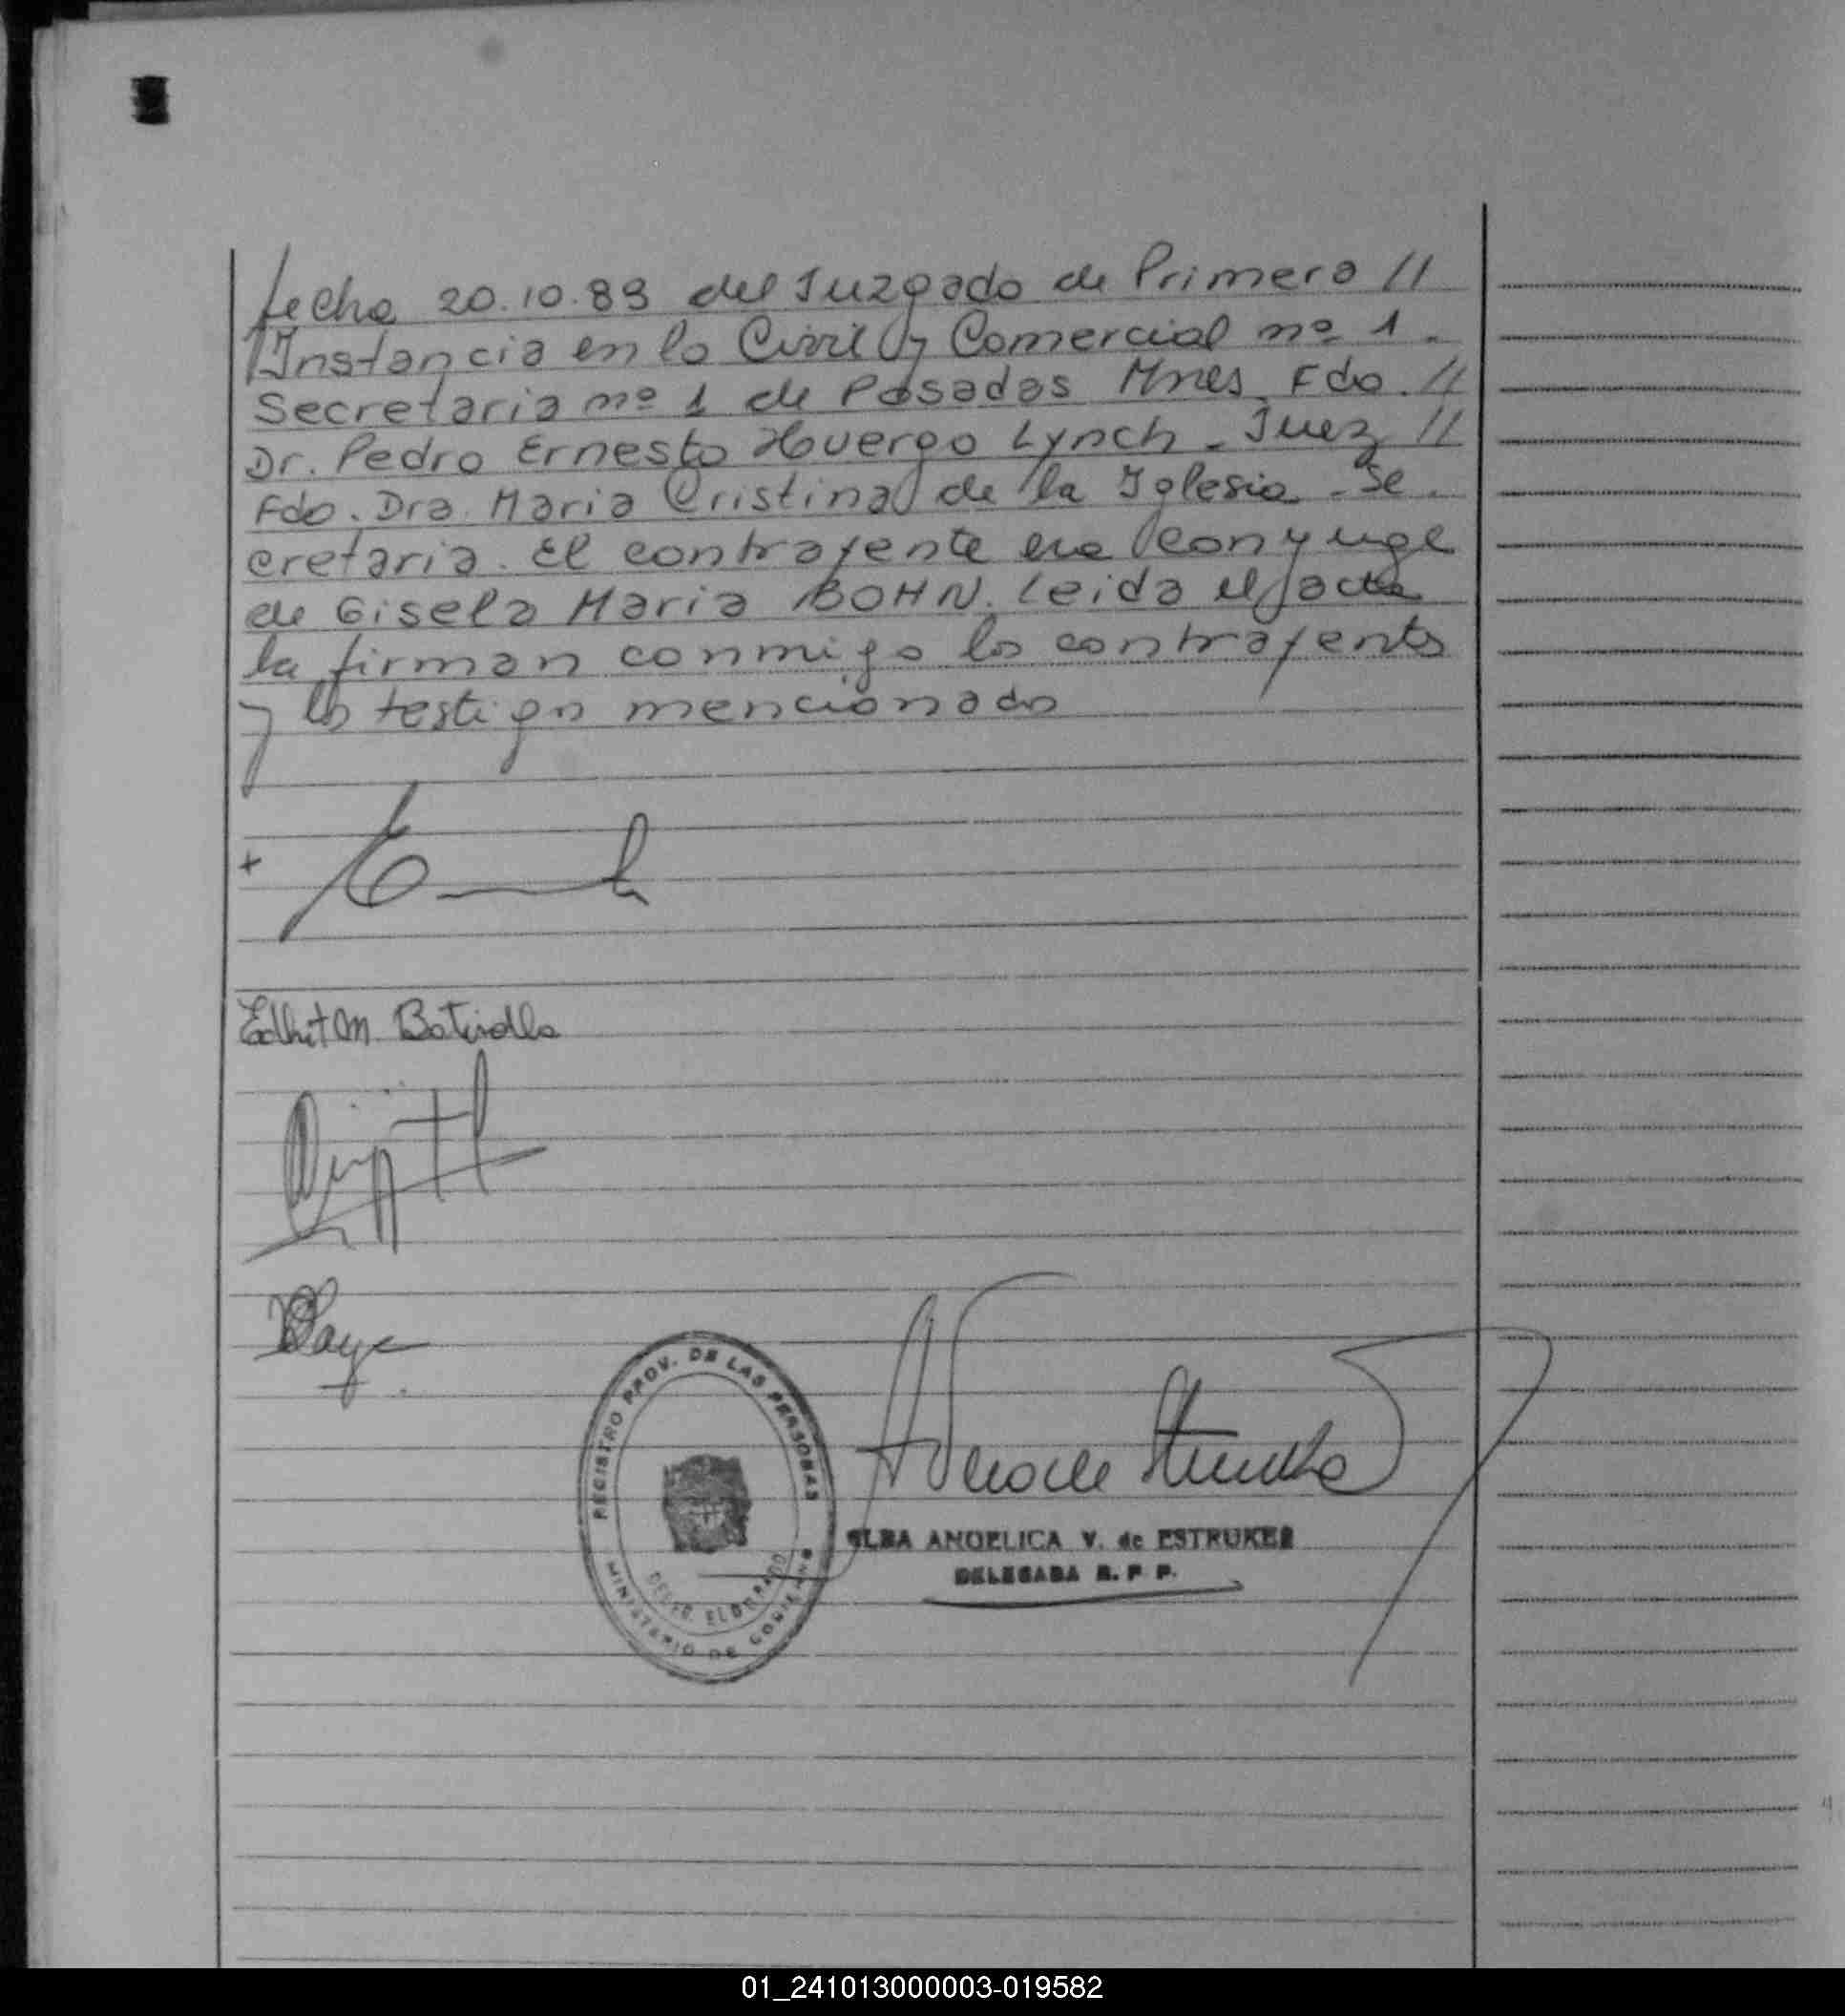 fecha 20.10.89 del Juzgado de Primera //
Instancia en lo Civil y Comercial nº 1.
Secretaria nº 1 de Posadas Mnes. Fdo. //
Dr. Pedro Ernesto Huergo Lynch - Juez //
Fdo. Dra. Maria Cristina de la Iglesia - Se.
cretaria. El contrayente era conyuge
de Gisela Maria BOHN. Leida el acta
la firman conmigo los contrayentes
y los testigos mencionados
+
Edhit M.
REGISTRO PROV. DE LAS PERSONAS
DELEG. ELDORADO
MINISTERIO DE GOBIERNO
ELBA ANGELICA V. de ESTRUKES
DELEGADA R. P. P.
01_241013000003-019582